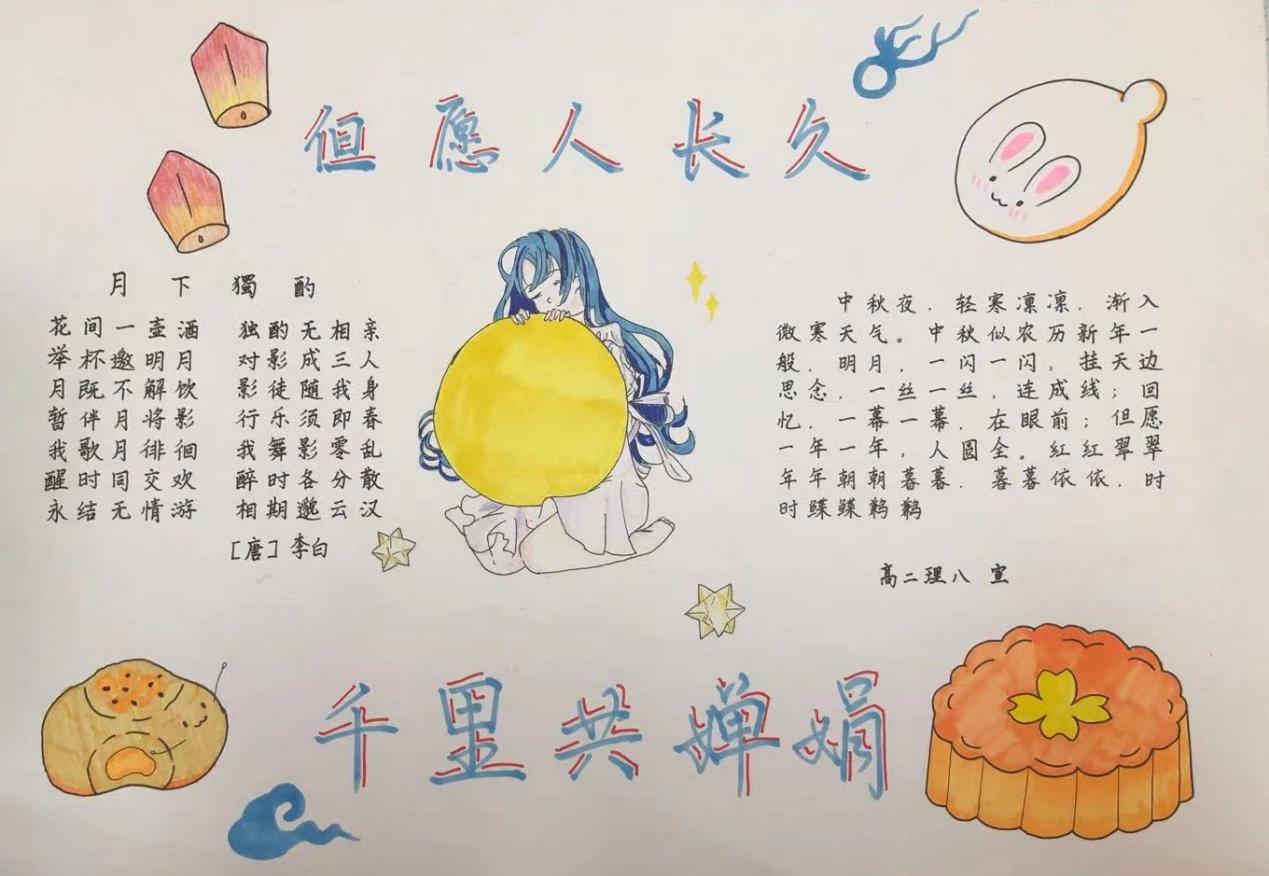 但愿人长久
月下獨酌
花间一壶酒 独酌无相亲
举杯邀明月 对影成三人
月既不解饮 影徒随我身
暂伴月将影 行乐须即春
我歌月徘徊 我舞影零乱
醒时同交欢 醉时各分散
永结无情游 相期邈云汉
[唐]李白
中秋夜，轻寒凛凛，渐入
微寒天气。中秋似农历新年一
般，明月，一闪一闪，挂天边
思念，一丝一丝，连成线；回
忆，一幕一幕，在眼前；但愿
一年一年，人圆全。红红翠翠
年年朝朝暮暮，暮暮依依，时
时鲽鲽鹣鹣
高二理八 宣
千里共婵娟